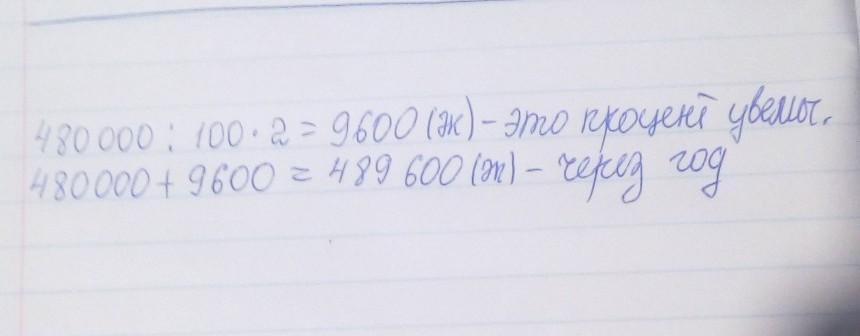 480000 : 100 · 2 = 9600 (эк) - это процент увелич.
480000 + 9600 = 489 600 (эк) - через год